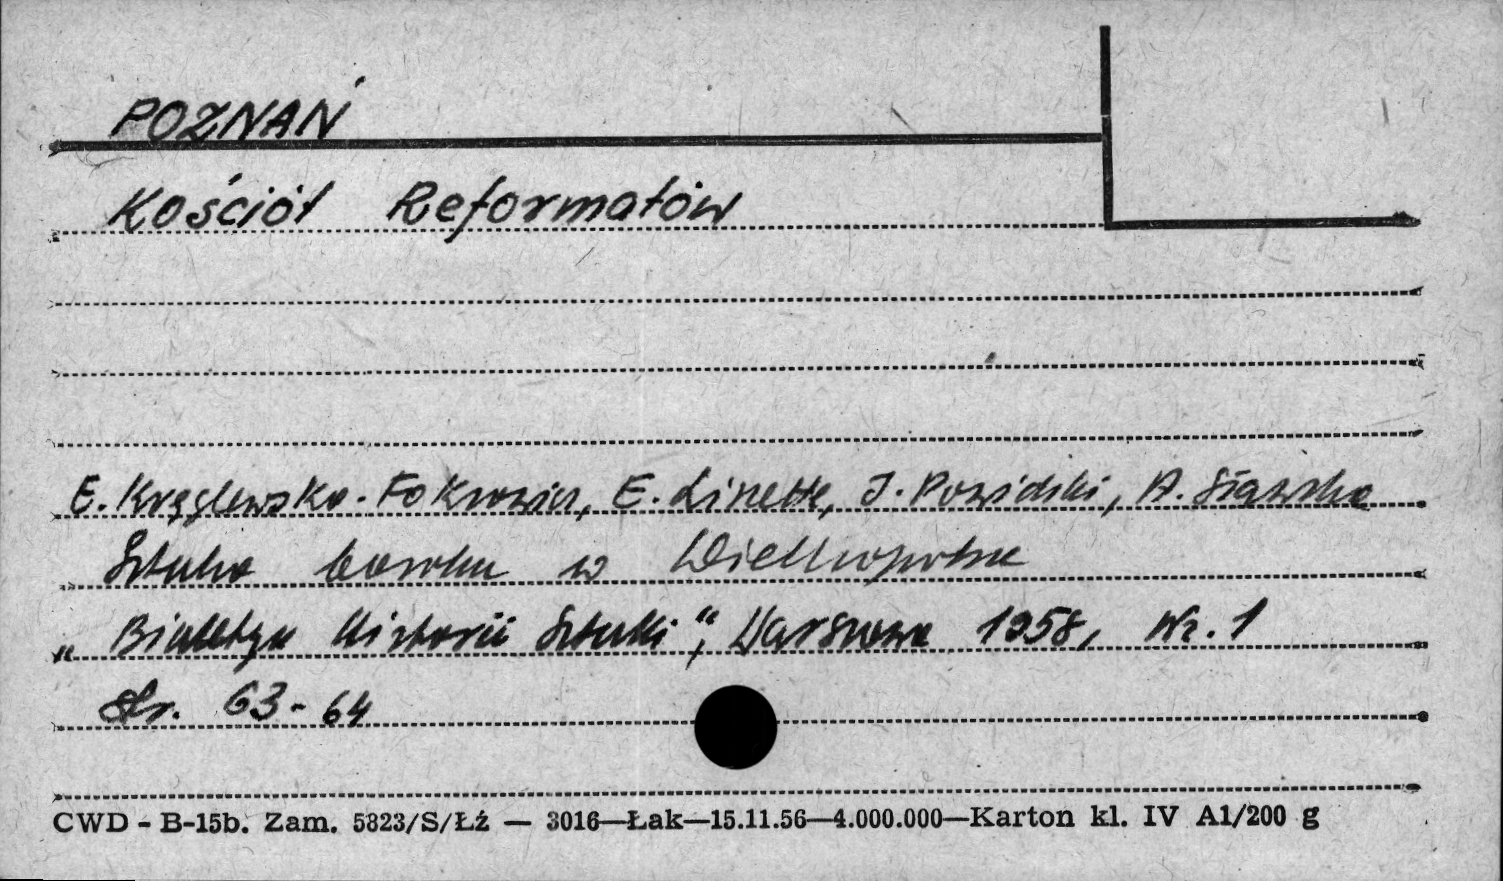 POZNAŃ
Kościół Reformatów
E. Kręglewska-Foksowicz, E. Linette, J. Powidzki, A. Sławska
Sztuka baroku w Wielkopolsce
„Biuletyn Historii Sztuki", Warszawa 1958, Nr. 1
str. 63-64
CWD - B-15b. Zam. 5823/S/Łż — 3016—Łak—15.11.56—4.000.000—Karton kl. IV A1/200 g